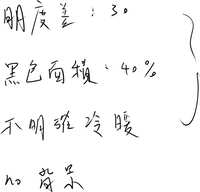 明度差：30
黑色面積：40%
不明確冷暖
no 背景